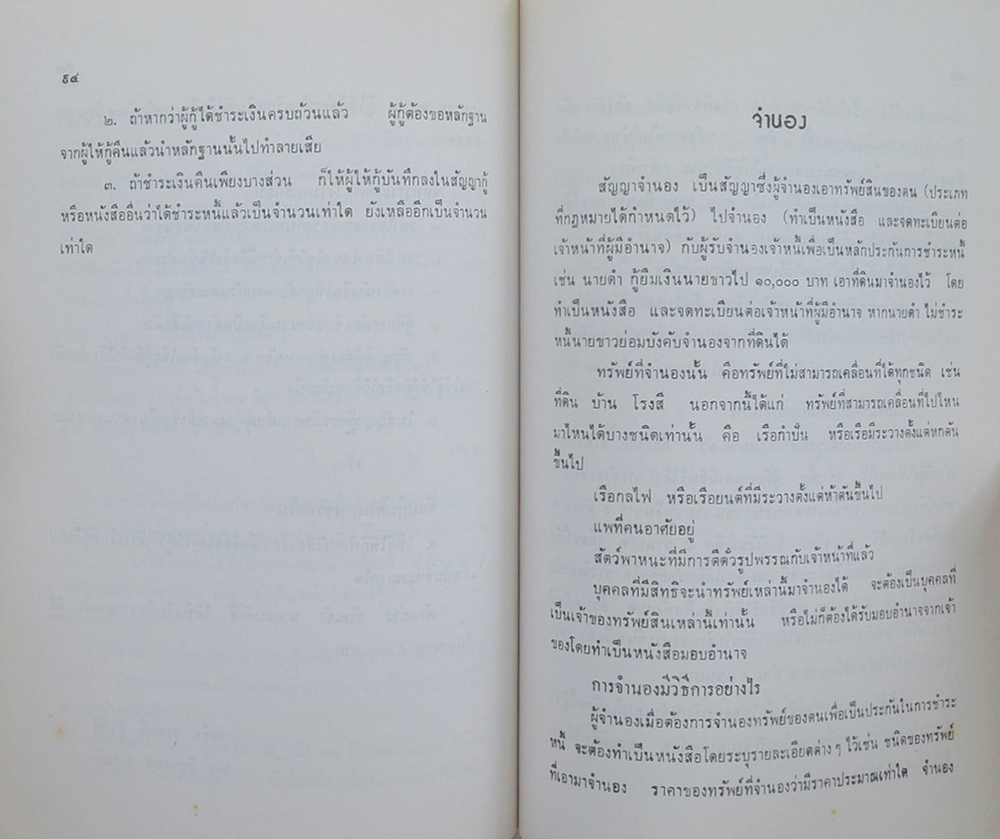 ๖๔
๒. ถ้าหากว่าผู้กู้ได้ชำระเงินครบถ้วนแล้ว ผู้กู้ต้องขอหลักฐาน
จากผู้ให้กู้คืนแล้วนำหลักฐานนั้นไปทำลายเสีย
๓. ถ้าชำระเงินคืนเพียงบางส่วน ก็ให้ผู้ให้กู้บันทึกลงในสัญญากู้
หรือหนังสืออื่นว่าได้ชำระหนี้แล้วเป็นจำนวนเท่าใด ยังเหลืออีกเป็นจำนวน
เท่าใด
จำนอง
สัญญาจำนอง เป็นสัญญาซึ่งผู้จำนองเอาทรัพย์สินของตน (ประเภท
ที่กฎหมายได้กำหนดไว้) ไปจำนอง (ทำเป็นหนังสือ และจดทะเบียนต่อ
เจ้าหน้าที่ผู้มีอำนาจ) กับผู้รับจำนองเจ้าหนี้เพื่อเป็นหลักประกันการชำระหนี้
เช่น นายดำ กู้ยืมเงินนายขาวไป ๑๐,๐๐๐ บาท เอาที่ดินมาจำนองไว้ โดย
ทำเป็นหนังสือ และจดทะเบียนต่อเจ้าหน้าที่ผู้มีอำนาจ หากนายดำ ไม่ชำระ
หนี้นายขาวย่อมบังคับจำนองจากที่ดินได้
ทรัพย์ที่จำนองนั้น คือทรัพย์ที่ไม่สามารถเคลื่อนที่ได้ทุกชนิด เช่น
ที่ดิน บ้าน โรงสี นอกจากนี้ได้แก่ ทรัพย์ที่สามารถเคลื่อนที่ไปไหน
มาไหนได้บางชนิดเท่านั้น คือ เรือกำปั่น หรือเรือมีระวางตั้งแต่หกตัน
ขึ้นไป
เรือกลไฟ หรือเรือยนต์ที่มีระวางตั้งแต่ห้าตันขึ้นไป
แพที่คนอาศัยอยู่
สัตว์พาหนะที่มีการตีตั๋วรูปพรรณกับเจ้าหน้าที่แล้ว
บุคคลที่มีสิทธิจะนำทรัพย์เหล่านี้มาจำนองได้ จะต้องเป็นบุคคลที่
เป็นเจ้าของทรัพย์สินเหล่านี้เท่านั้น หรือไม่ก็ต้องได้รับมอบอำนาจจากเจ้า
ของโดยทำเป็นหนังสือมอบอำนาจ
การจำนองมีวิธีการอย่างไร
ผู้จำนองเมื่อต้องการจำนองทรัพย์ของตนเพื่อเป็นประกันในการชำระ
หนี้ จะต้องทำเป็นหนังสือโดยระบุรายละเอียดต่าง ๆ ไว้เช่น ชนิดของทรัพย์
ที่เอามาจำนอง ราคาของทรัพย์ที่จำนองว่ามีราคาประมาณเท่าใด จำนอง